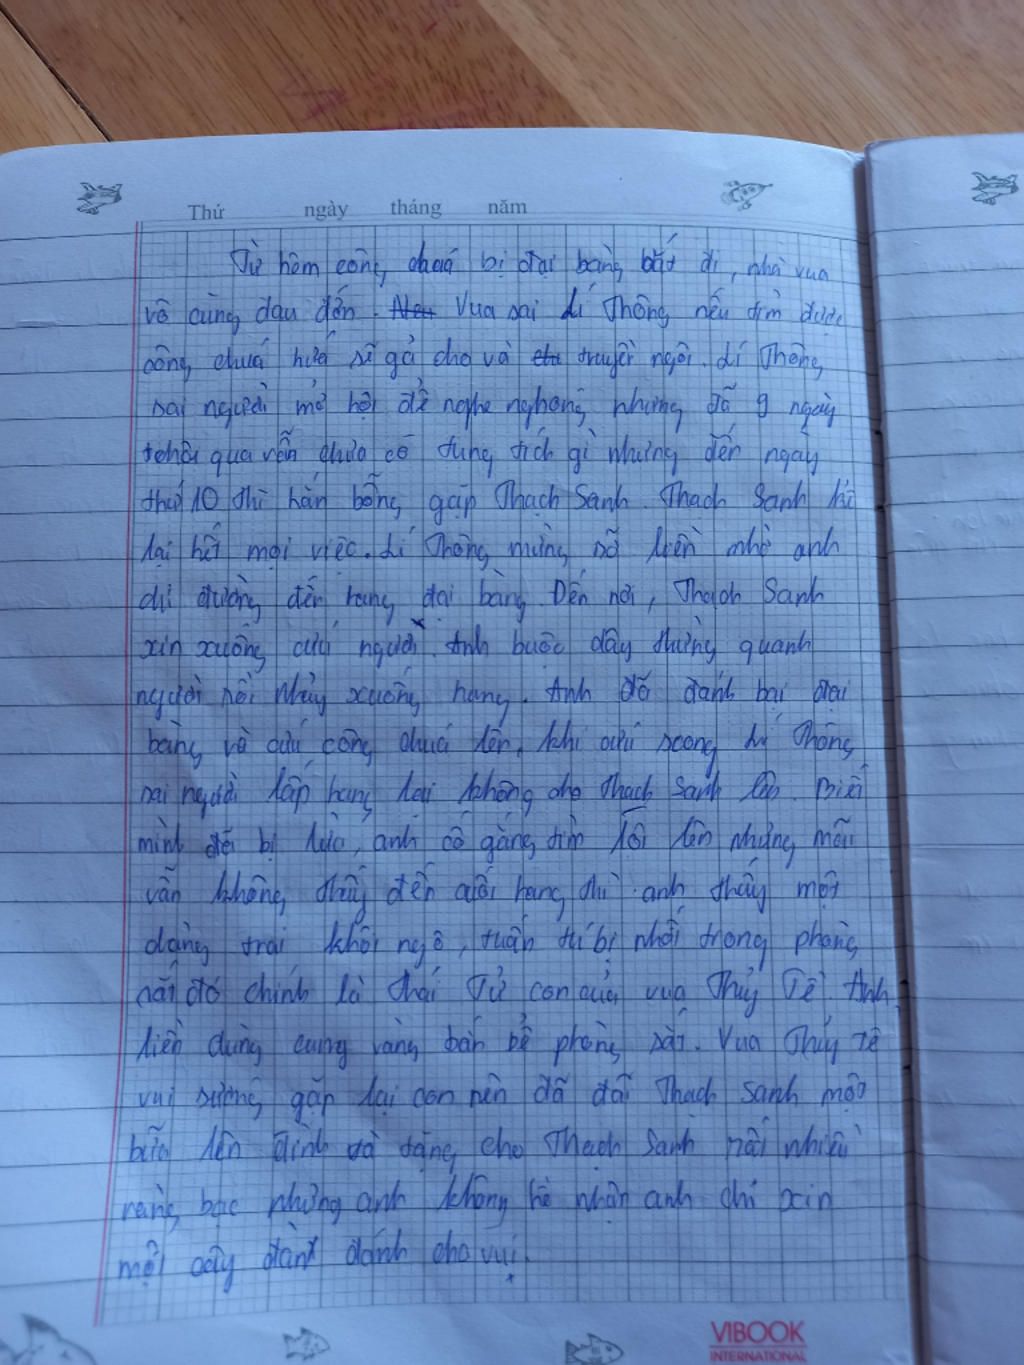 Thứ ngày tháng năm
Từ hôm công chúa bị đại bàng bắt đi, nhà vua
vô cùng đau đớn. Vua sai Lí Thông nếu tìm được
công chúa hứa sẽ gả cho và truyền ngôi. Lí Thông
sai người mở hội để nghe nghong nhưng đã 9 ngày
qua vẫn chưa có tung tích gì nhưng đến ngày
thứ 10 thì hắn bỗng gặp Thạch Sanh. Thạch Sanh kể
lại hết mọi việc. Lí Thông mừng rỡ liền nhờ anh
đường đến hang đại bàng. Đến nơi, Thạch Sanh
xin xuống cứu người. Anh buộc dây thừng quanh
người rồi nhảy xuống hang. Anh đã đánh bại đại
bàng và cứu công chúa lên, khi cứu xong Lí Thông
sai người lấp hang lại không cho Thạch Sanh lên. Biết
mình đã bị lừa, anh cố gắng tìm lối lên nhưng mãi
vẫn không thấy đến cuối hang thì anh thấy một
trai khôi ngô, tuấn tú bị nhốt trong phòng
sắt đó chính là thái Tử con của vua Thủy Tề. Anh
liền dùng cung vàng bắn bể phòng sắt. Vua Thủy Tề
vui sướng gặp lại con nên đã đãi Thạch Sanh một
bữa lên đình và tặng cho Thạch Sanh rất nhiều
vàng bạc nhưng anh không hề nhận anh chỉ xin
một cây đàn đánh cho vui.
VIBOOK
INTERNATIONAL